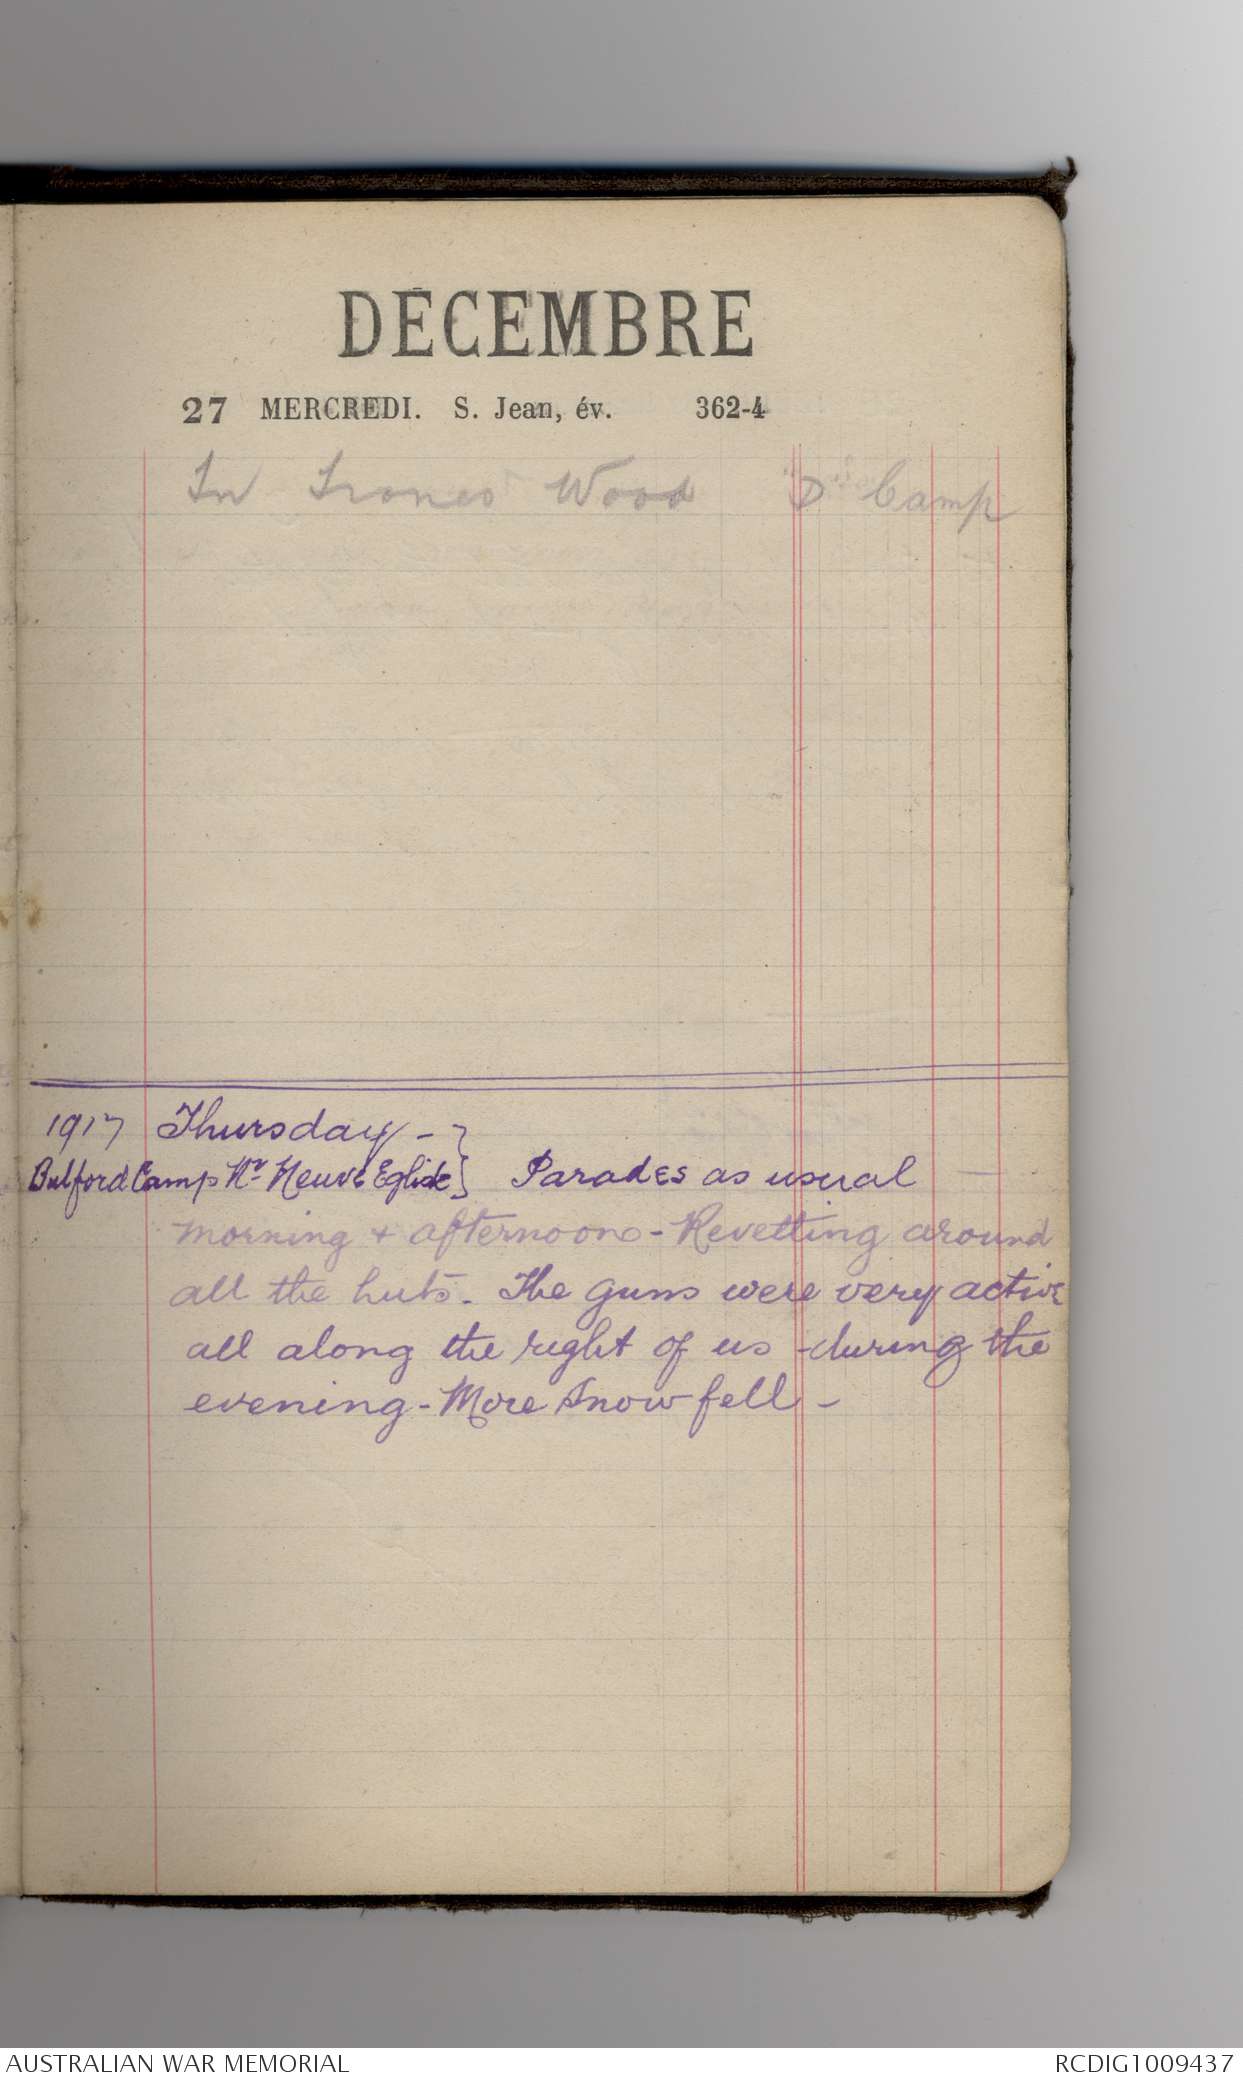 DÉCEMBRE
27 MERCREDI. S. Jean, év. 362-4
In Trones Wood "D" Camp
1917 Thursday - }
Bulford Camp Nr Neuve Eglise } Parades as usual
morning + afternoons - Revetting around
all the huts. The guns were very active
all along the right of us - during the
evening - More Snow fell -
AUSTRALIAN WAR MEMORIAL
RCDIG1009437